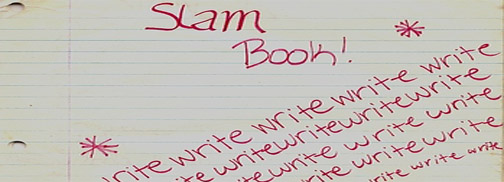 Slam
Book!
rite write write write write
te writewritewritewrite
write write write write
write writewrite
write write write